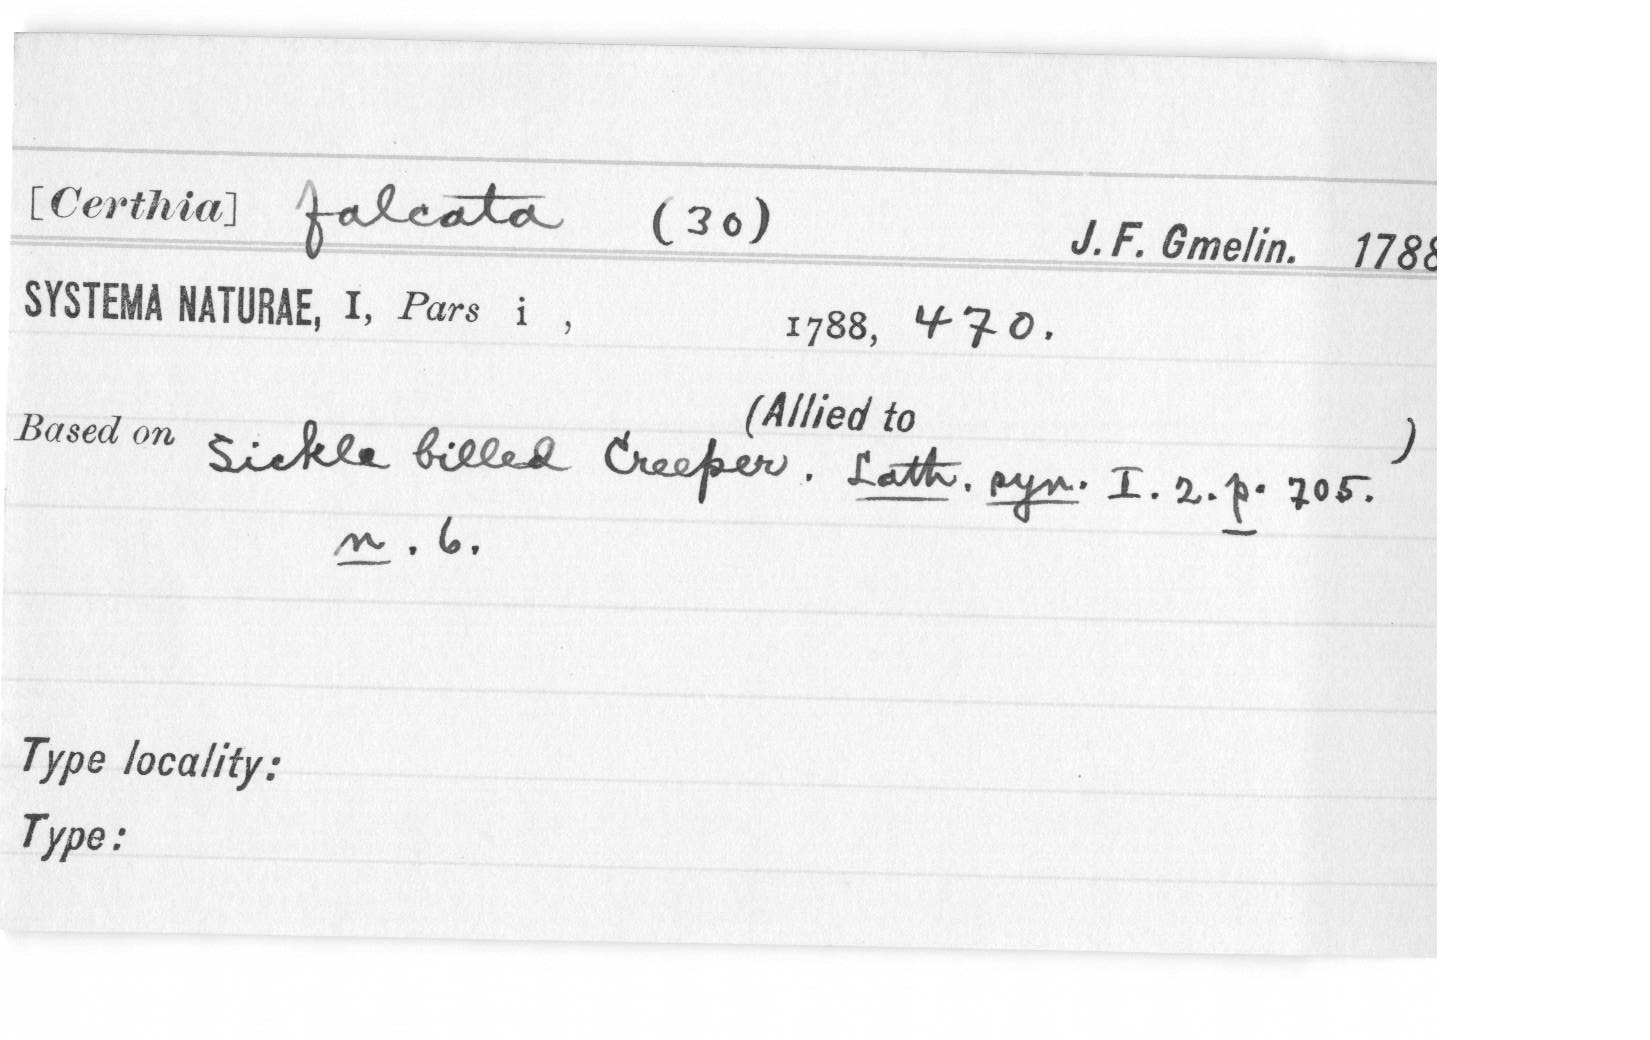 [Certhia] falcata (30) J. F. Gmelin. 1788
SYSTEMA NATURAE, I, Pars i , 1788, 470.
(Allied to )
Based on Sickle billed Creeper. Lath. syn. I. 2. p. 705.
n. 6.
Type locality:
Type: